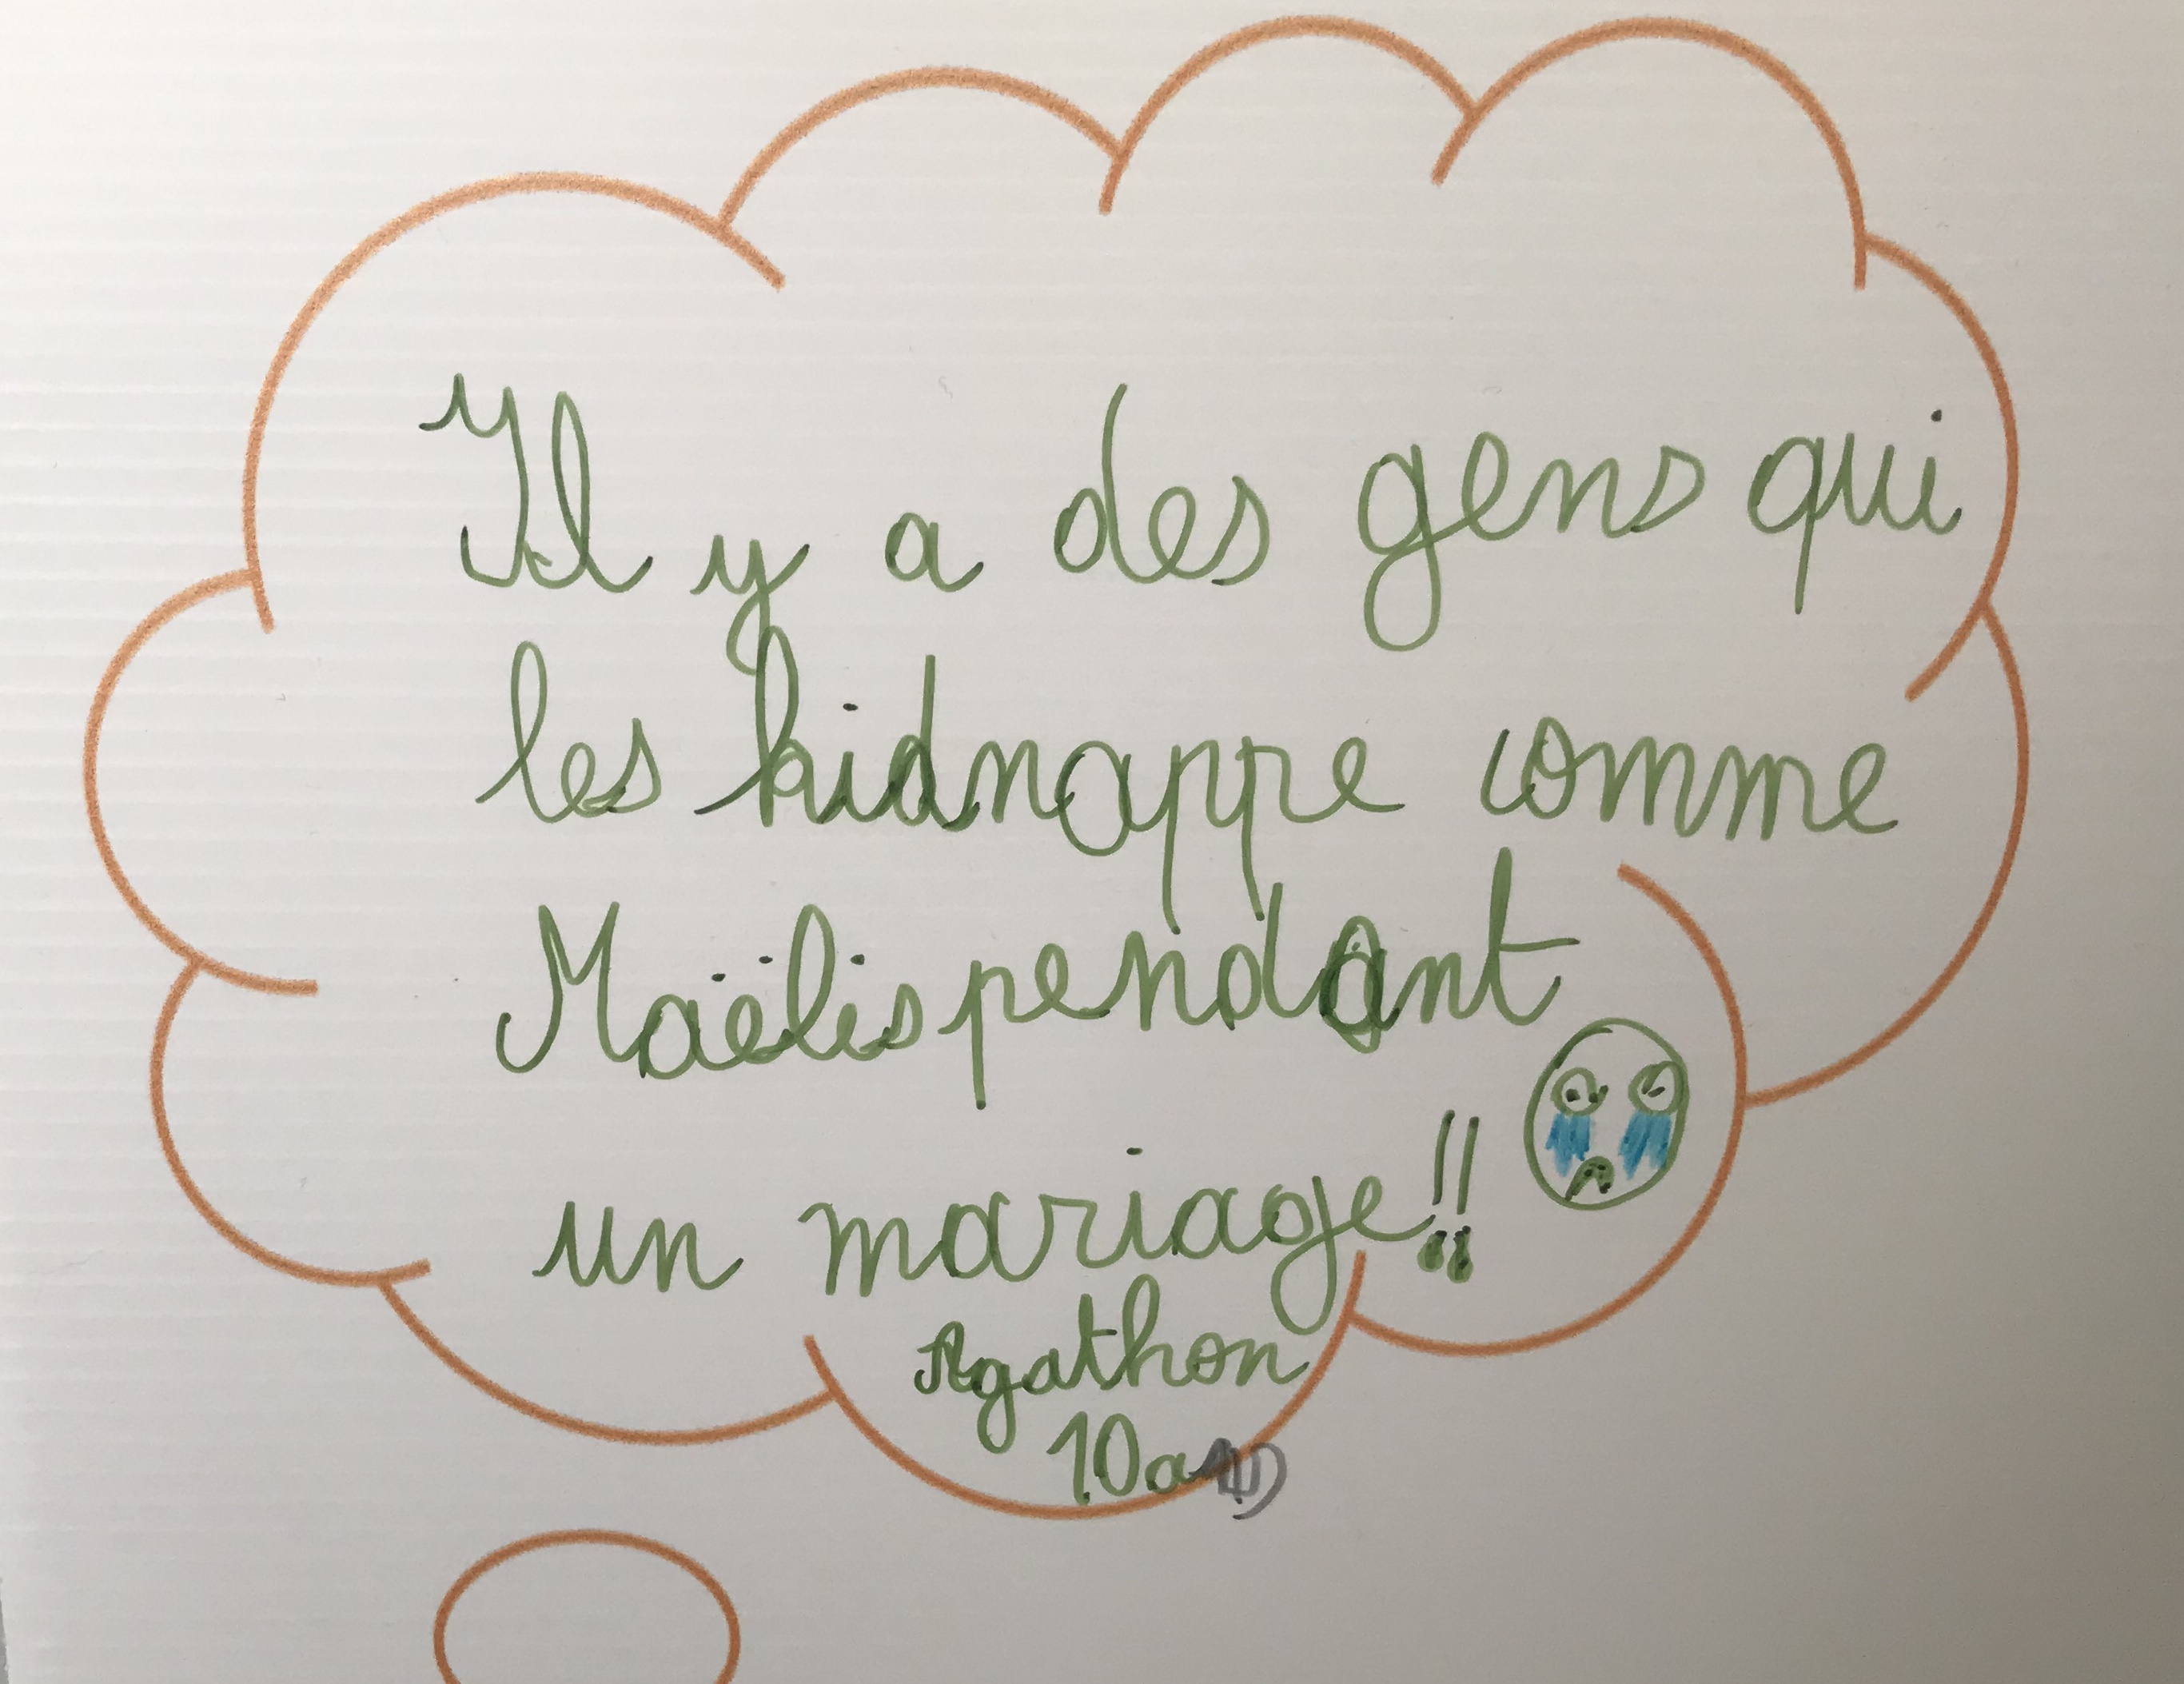 Il y a des gens qui
les kidnappe comme
Maëlis pendant
un mariage!!
Agathon
10